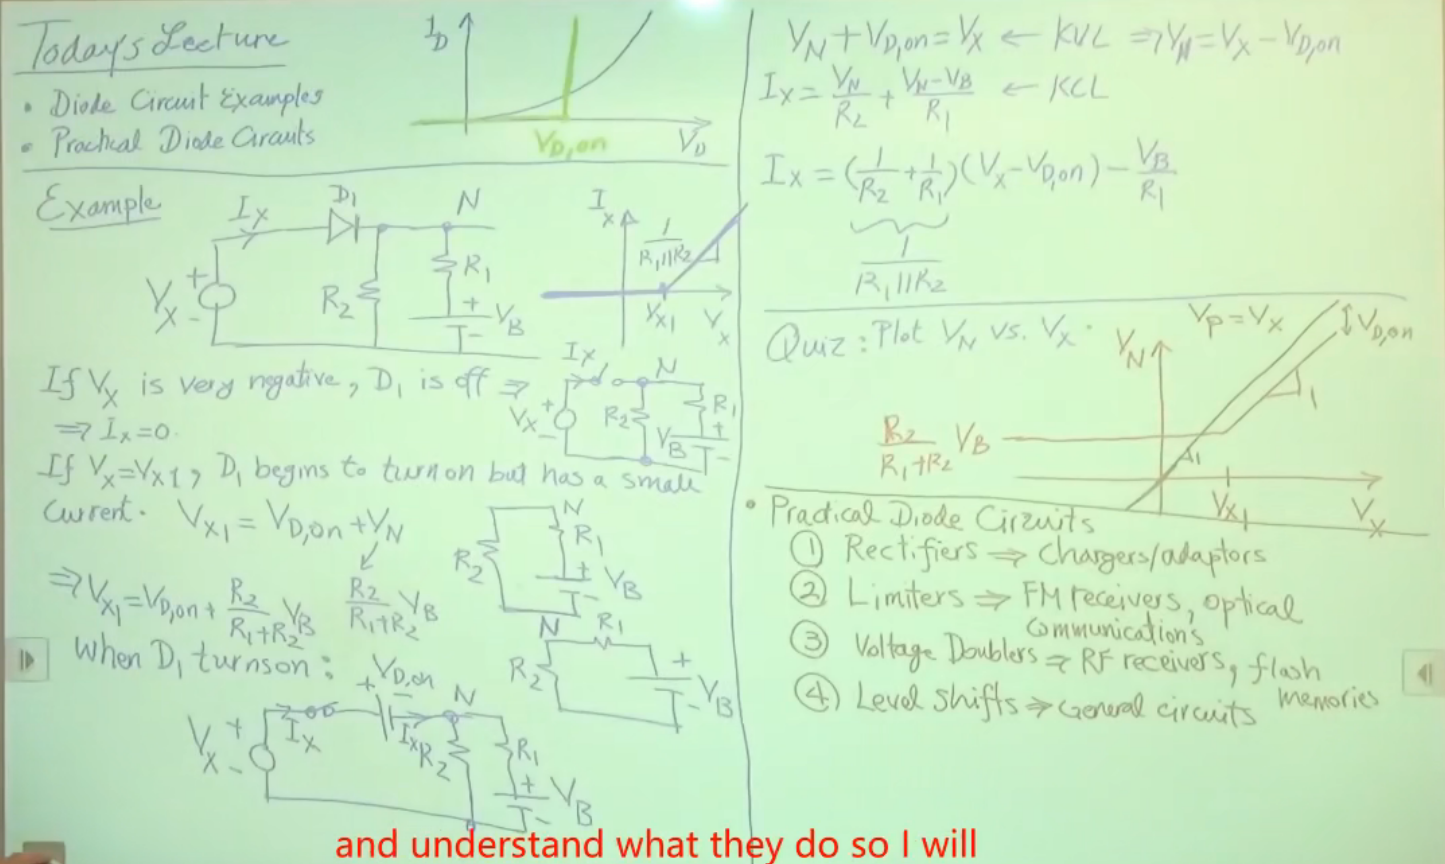 Today's Lecture
• Diode Circuit Examples
• Practical Diode Circuits
I_D
V_D,on
V_D
Example
I_X
D_1
N
V_X
+
-
R_2
R_1
+
-
V_B
I_X
1/(R_1||R_2)
V_X1
V_X
If V_X is very negative, D_1 is off ⇒
⇒ I_X=0.
I_X
N
V_X
+
-
R_2
R_1
V_B
+
-
If V_X=V_X1, D_1 begins to turn on but has a small
Current. V_X1 = V_D,on + V_N
⇒ V_X1 = V_D,on + R_2/(R_1+R_2) V_B
R_2/(R_1+R_2) V_B
N
R_2
R_1
+
-
V_B
N
R_1
R_2
+
-
V_B
When D_1 turns on:
+ V_D,on -
N
V_X
+
-
I_X
I_X
R_2
R_1
+
-
V_B
V_N + V_D,on = V_X ← KVL ⇒ V_N = V_X - V_D,on
I_X = V_N/R_2 + (V_N-V_B)/R_1 ← KCL
I_X = (1/R_2 + 1/R_1)(V_X - V_D,on) - V_B/R_1
1/(R_1||R_2)
Quiz: Plot V_N vs. V_X.
V_N
V_P = V_X
V_D,on
1
R_2/(R_1+R_2) V_B
1
V_X1
V_X
• Practical Diode Circuits
① Rectifiers ⇒ Chargers/adaptors
② Limiters ⇒ FM receivers, optical
communications
③ Voltage Doublers ⇒ RF receivers, flash
memories
④ Level Shifts ⇒ General circuits
and understand what they do so I will